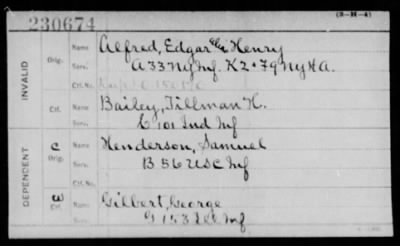 230674
(3-H-4)
INVALID
Orig.
Name Alfred, Edgar Henry
Serv. A 33 Ny Inf. K 2 + 79 Ny H A.
Ctf. No.
Ctf.
Name Bailey, Tillman H.
Serv. E 101 Ind Inf
DEPENDENT
C
Orig.
Name Henderson, Samuel
Serv. B 56 U S C Inf
Ctf. No.
W
Ctf.
Name Gilbert, George
Serv. G 153 Ill Inf